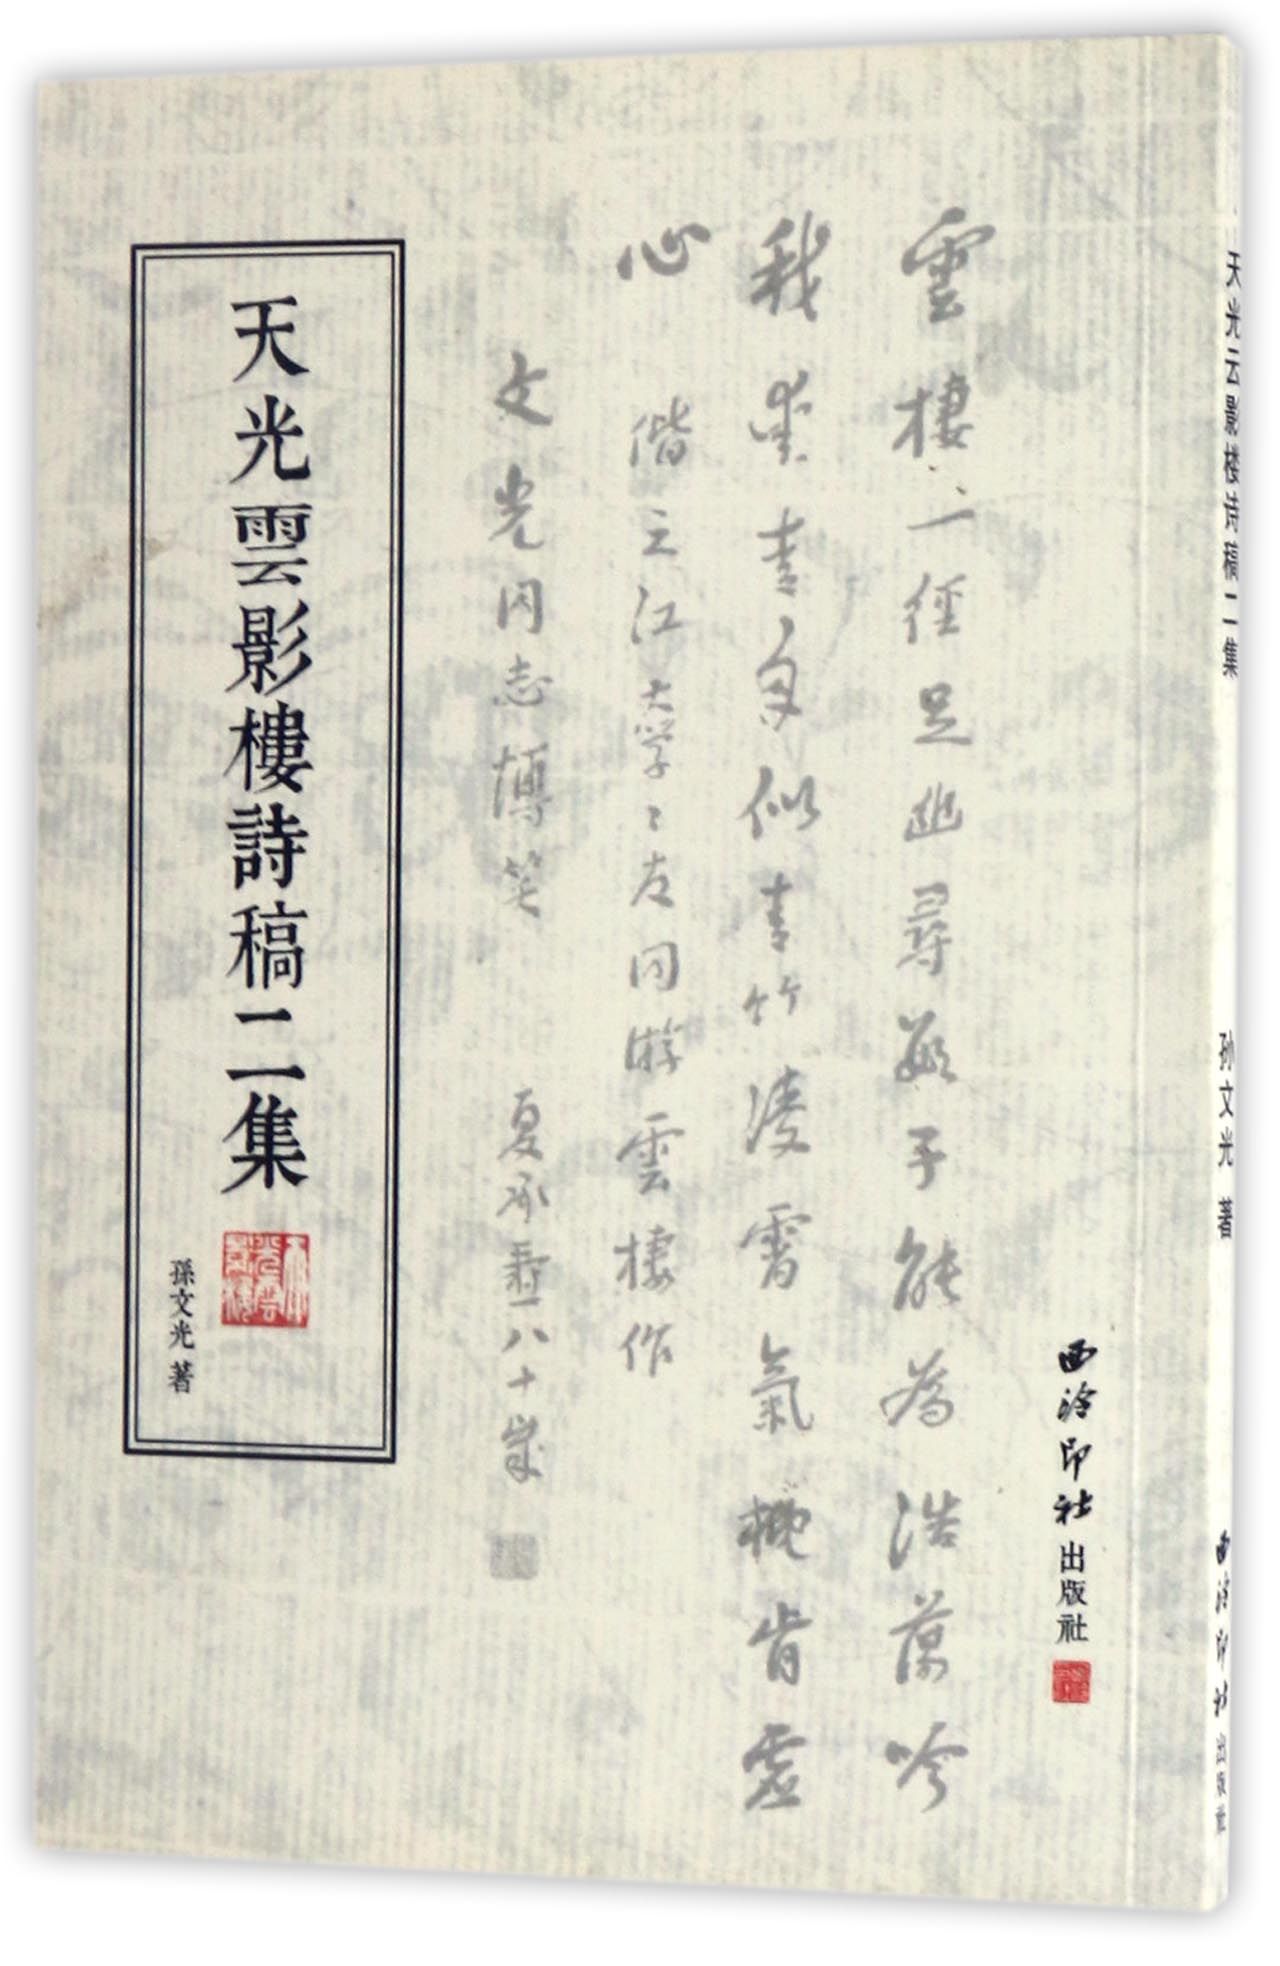 天光雲影樓詩稿二集
天光雲影樓
孫文光 著
雲棲一徑足幽尋數子能為浩蕩吟
我愛青年似青竹凌霄氣概肯虛
心
偕之江大學々友同游雲棲作
文光同志博笑
夏承燾八十歲
西泠印社出版社
天光云影楼诗稿二集
孙文光 著
西泠印社出版社